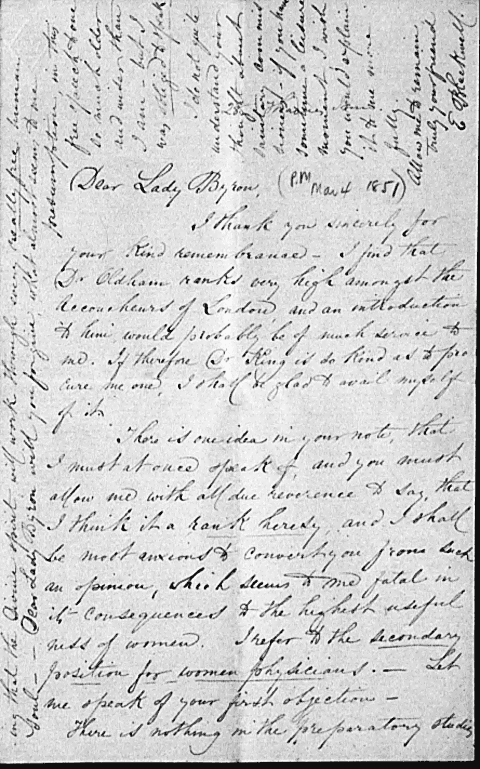 Dear Lady Byron,
(P.M. Mar 4 1851)
I thank you sincerely for
your kind remembrance – I find that
Dr Oldham ranks very high amongst the
Accoucheurs of London, and an introduction
to him would probably be of much service to
me. If therefore Dr King is so kind as to pro
cure me one, I shall be glad to avail myself
of it.
There is one idea in your note, that
I must at once speak of, and you must
allow me with all due reverence to say, that
I think it a rank heresy, and I shall
be most anxious to convert you from such
an opinion, which seems to me fatal in
its consequences to the highest useful
ness of women. I refer to the secondary
position for women physicians. – Let
me speak of your first objection –
There is nothing in the preparatory studies
ing that the divine spirit will work through every really pure human
Soul – – Dear Lady Byron will you forgive, what almost seems to me
presumption, in this
free speech to one
so much older
and wiser than
I am – but I
was obliged to speak
I do not quite
understand your
thought about
sanitary commis
sioning if you have
sometime a leisure
moment, I wish
you would explain
it to me more
fully
Allow me to remain
truly your friend
E Blackwell